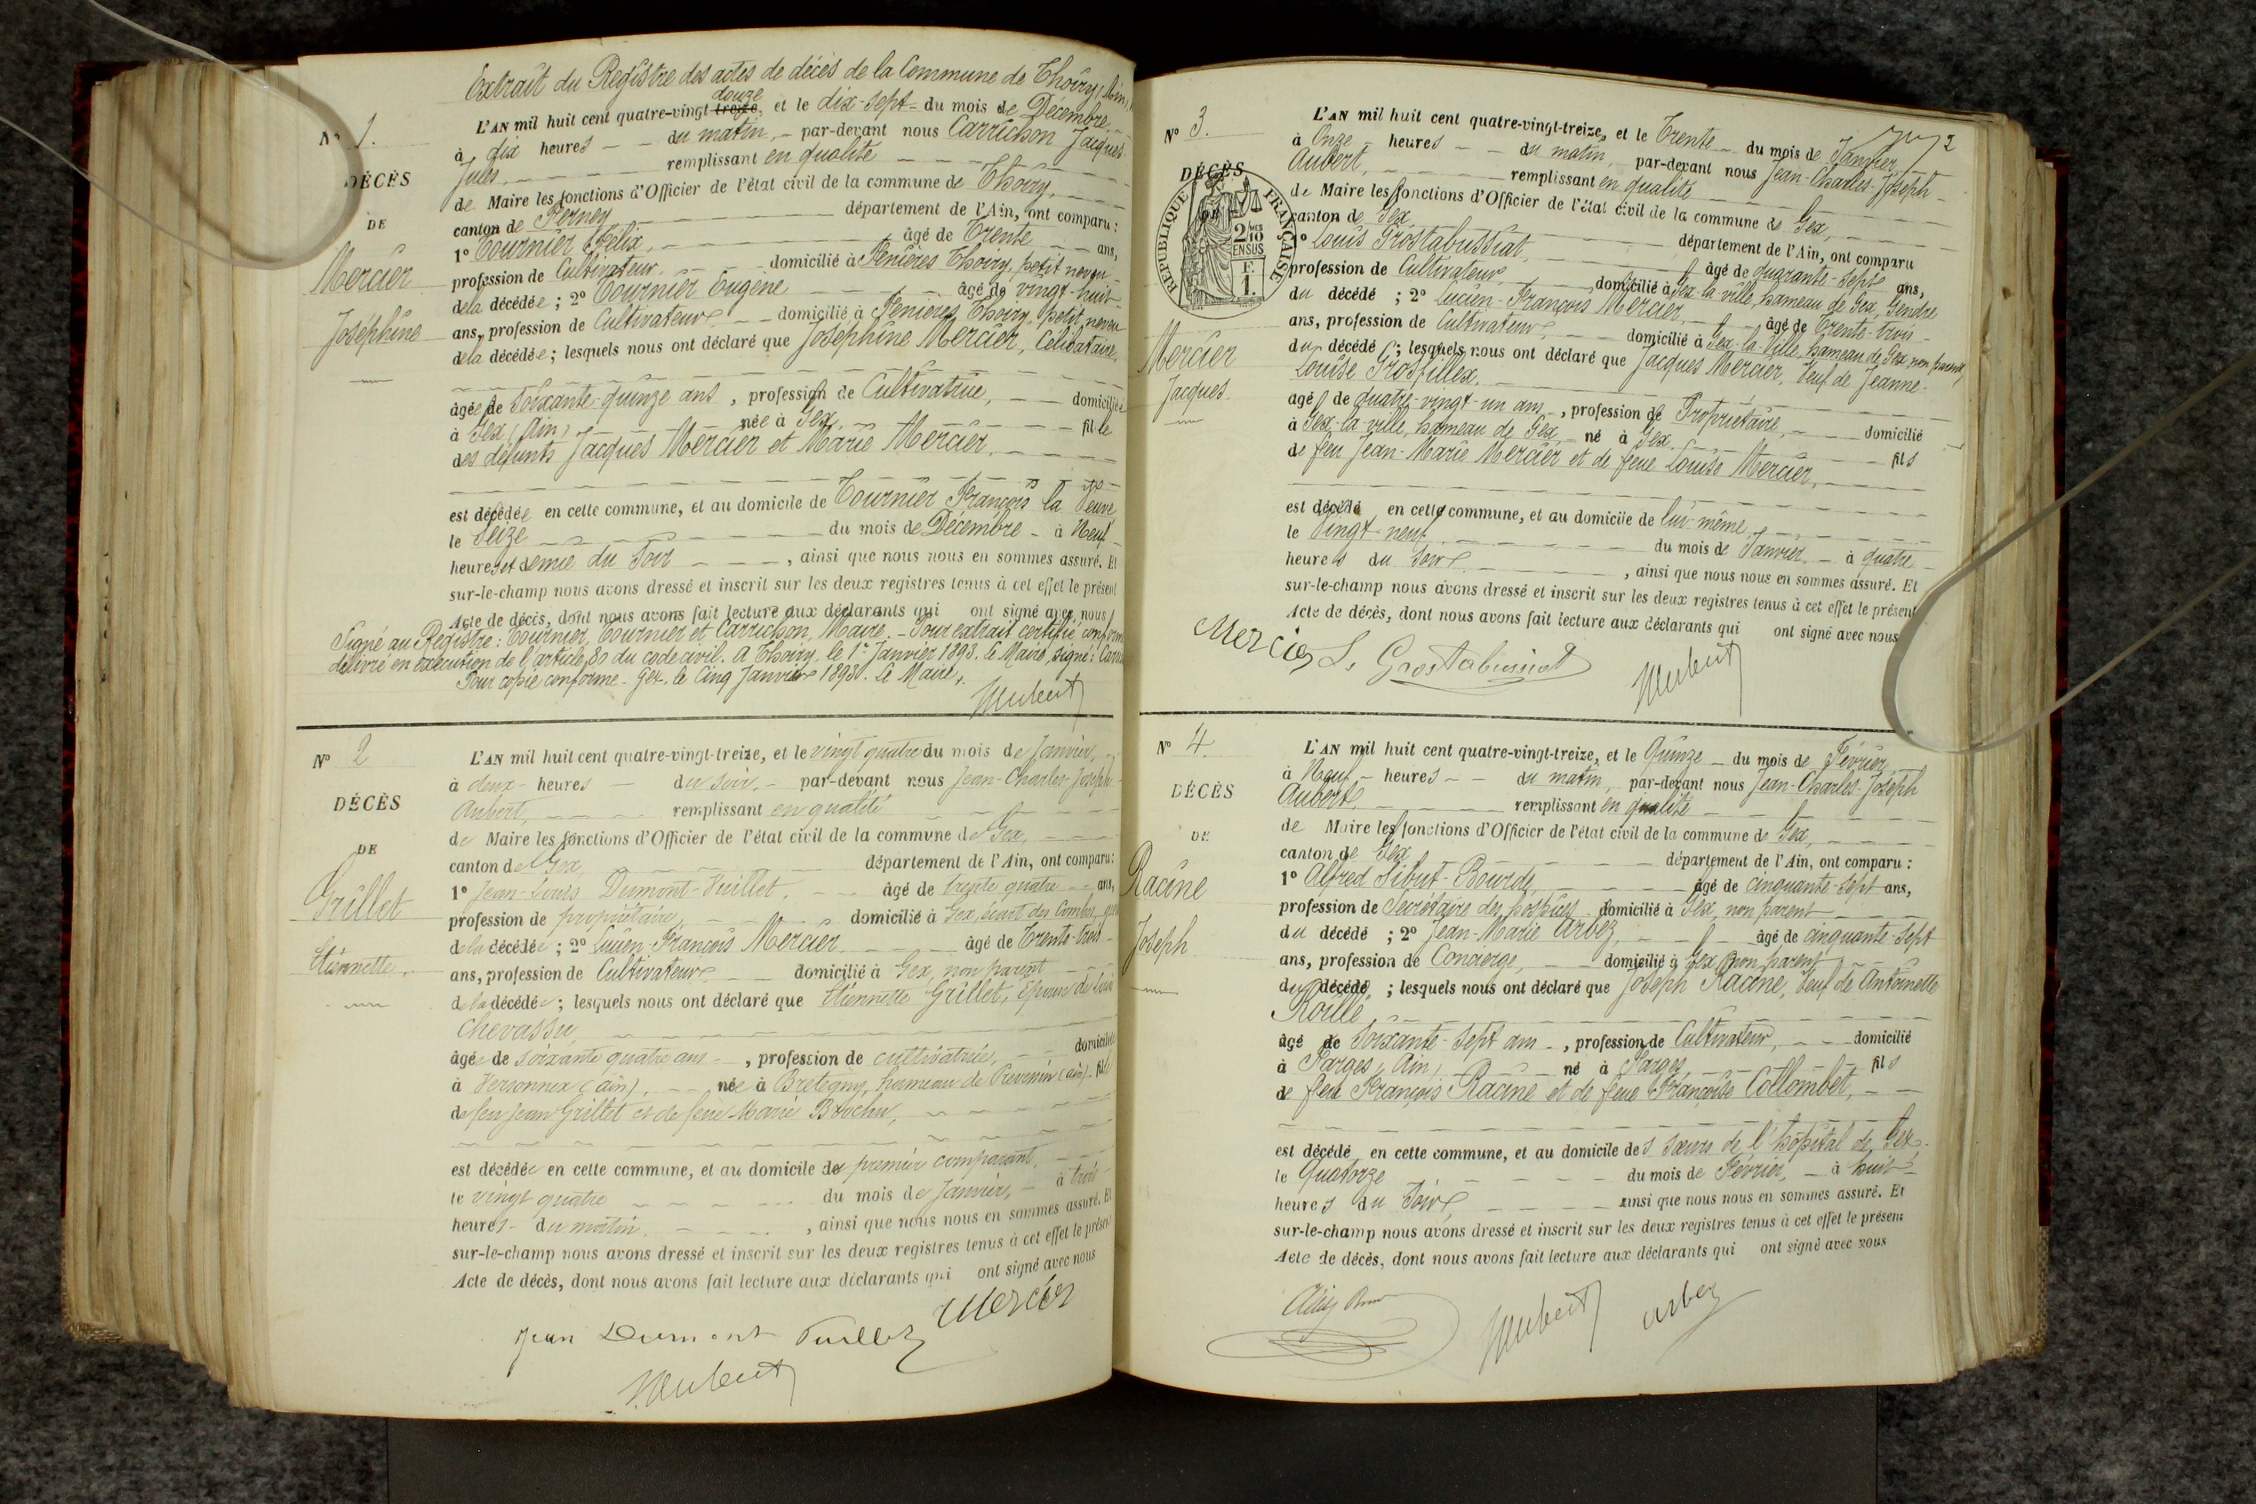 Extrait du Registre des actes de décès de la Commune de Thoiry, Ain,
N° 1.
DÉCÈS
DE
Mercier
Joséphine
douze
L'AN mil huit cent quatre-vingt treize, et le dix-sept du mois de Décembre
à dix heures du matin, par-devant nous Carrichon Jacques
Jules, remplissant en qualité
de Maire les fonctions d'Officier de l'état civil de la commune de Thoiry,
canton de Ferney département de l'Ain, ont comparu :
1° Tournier Félix, âgé de Trente ans,
profession de Cultivateur, domicilié à Fenières Thoiry, petit neveu
de la décédée ; 2° Tournier Eugène âgé de vingt-huit
ans, profession de Cultivateur, domicilié à Fenières, Thoiry, petit neveu
de la décédée ; lesquels nous ont déclaré que Joséphine Mercier, Célibataire,
âgée de soixante-quinze ans, profession de Cultivatrice, domiciliée
à Gex (Ain) née à Gex, fille
des défunts Jacques Mercier et Marie Mercier.
est décédée en cette commune, et au domicile de Tournier François la Veuve
le Seize du mois de Décembre à Neuf
heures et demie du Soir, ainsi que nous nous en sommes assuré. Et
sur-le-champ nous avons dressé et inscrit sur les deux registres tenus à cet effet le présent
Acte de décès, dont nous avons fait lecture aux déclarants qui ont signé avec nous
Signé au Registre : Tournier, Tournier et Carrichon, Maire. - Pour extrait certifié conforme
délivré en exécution de l'article 80 du code civil. A Thoiry, le 1er Janvier 1893. Le Maire, signé :
Pour copie conforme - Gex, le Cinq Janvier 1893. Le Maire,
Aubert
N° 2
DÉCÈS
DE
Grillet
Etiennette.
L'AN mil huit cent quatre-vingt-treize, et le vingt quatre du mois de Janvier,
à deux heures du soir, par-devant nous Jean-Charles-Joseph
Aubert, remplissant en qualité
de Maire les fonctions d'Officier de l'état civil de la commune de Gex,
canton de Gex, département de l'Ain, ont comparu :
1° Jean-Louis Dumont-Vuillet, âgé de trente quatre ans,
profession de propriétaire, domicilié à Gex, écart des Combes,
de la décédée ; 2° Lucien-François Mercier âgé de Trente-trois
ans, profession de Cultivateur domicilié à Gex, non parent
de la décédée ; lesquels nous ont déclaré que Etiennette Grillet, Epouse de
Chevassu,
âgée de soixante quatre ans, profession de cultivatrice, domiciliée
à Versonnex (Ain), née à Brétigny, hameau de Prévessin (Ain) fille
de feu Jean Grillet et de feue Marie
est décédée en cette commune, et au domicile du premier comparant,
le vingt quatre du mois de Janvier, à trois
heures du matin, ainsi que nous nous en sommes assuré. Et
sur-le-champ nous avons dressé et inscrit sur les deux registres tenus à cet effet le présent
Acte de décès, dont nous avons fait lecture aux déclarants qui ont signé avec nous
Mercier
Jean Dumont Vuillet
Aubert
2
N° 3.
DÉCÈS
RÉPUBLIQUE FRANÇAISE
2/10
EN SUS
F.
1.
Mercier
Jacques
L'AN mil huit cent quatre-vingt-treize, et le Trente du mois de Janvier,
à Onze heures du matin, par-devant nous Jean-Charles-Joseph
Aubert, remplissant en qualité
de Maire les fonctions d'Officier de l'état civil de la commune de Gex,
canton de Gex département de l'Ain, ont comparu
1° Louis Grostabussiat, âgé de quarante-sept ans,
profession de Cultivateur, domicilié à Gex-la-ville, hameau de Gex, Gendre
du décédé ; 2° Lucien-François Mercier, âgé de Trente-trois
ans, profession de Cultivateur, domicilié à Gex-la-Ville, hameau de Gex, non parent
du décédé ; lesquels nous ont déclaré que Jacques Mercier, Veuf de Jeanne-
Louise Grosfillex,
âgé de quatre-vingt-un ans, profession de Propriétaire, domicilié
à Gex-la-ville, hameau de Gex, né à Gex fils
de feu Jean-Marie Mercier et de feue Louise Mercier,
est décédé en cette commune, et au domicile de lui-même,
le Vingt-neuf du mois de Janvier à quatre
heures du Soir, ainsi que nous nous en sommes assuré. Et
sur-le-champ nous avons dressé et inscrit sur les deux registres tenus à cet effet le présent
Acte de décès, dont nous avons fait lecture aux déclarants qui ont signé avec nous
Mercier L. Grostabussiat
Aubert
N° 4.
DÉCÈS
DE
Racine
Joseph
L'AN mil huit cent quatre-vingt-treize, et le Quinze du mois de Février
à Neuf heures du matin, par-devant nous Jean-Charles-Joseph
Aubert, remplissant en qualité
de Maire les fonctions d'Officier de l'état civil de la commune de Gex,
canton de Gex département de l'Ain, ont comparu :
1° Alfred Sibut-Bourde, âgé de cinquante-sept ans,
profession de Secrétaire des hospices domicilié à Gex, non parent
du décédé ; 2° Jean-Marie Arbez, âgé de cinquante-sept
ans, profession de Concierge, domicilié à Gex, non parent
du décédé ; lesquels nous ont déclaré que Joseph Racine, Veuf de Antoinette
Roille
âgé de Soixante-sept ans, profession de Cultivateur, domicilié
à Farges, Ain, né à Farges, fils
de feu François Racine et de feue Françoise Collombet,
est décédé en cette commune, et au domicile des Sœurs de l'hôpital de Gex
le Quatorze du mois de Février, à huit
heures du Soir, ainsi que nous nous en sommes assuré. Et
sur-le-champ nous avons dressé et inscrit sur les deux registres tenus à cet effet le présent
Acte de décès, dont nous avons fait lecture aux déclarants qui ont signé avec nous
Aubert Arbez